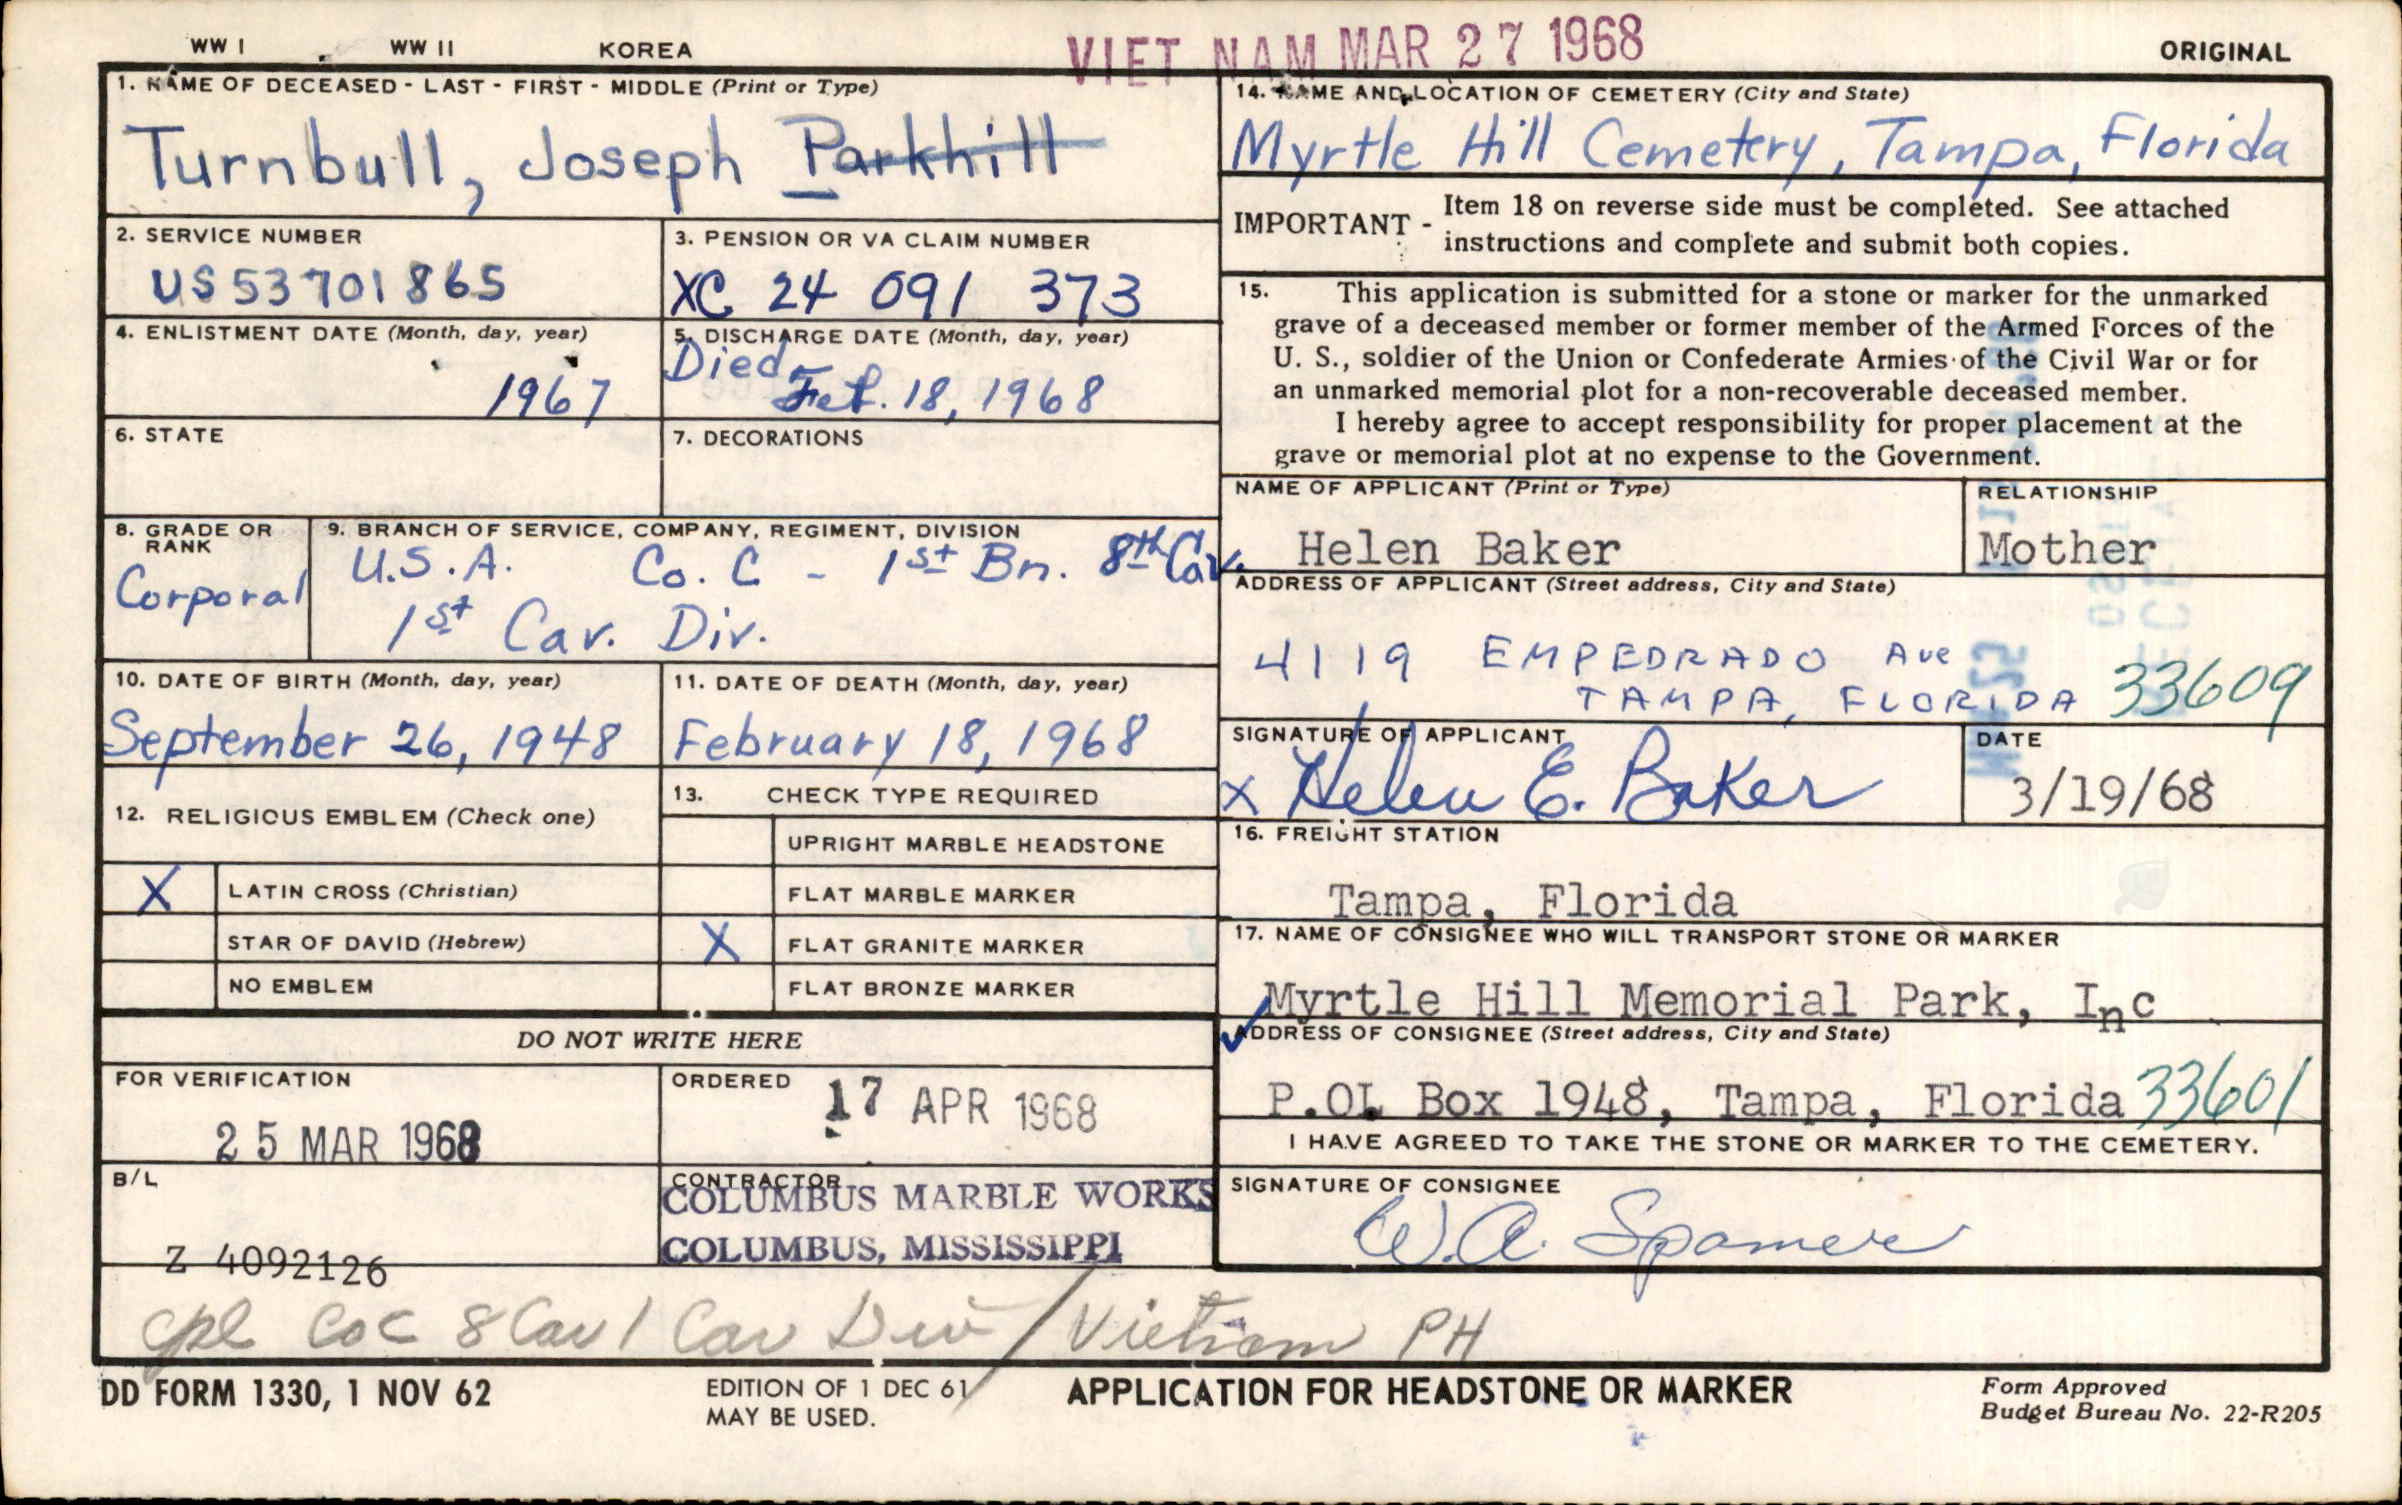 WW I WW II KOREA VIET NAM MAR 27 1968 ORIGINAL
1. NAME OF DECEASED - LAST - FIRST - MIDDLE (Print or Type)
Turnbull, Joseph Parkhill
2. SERVICE NUMBER
US 53701865
3. PENSION OR VA CLAIM NUMBER
XC 24 091 373
4. ENLISTMENT DATE (Month, day, year)
1967
5. DISCHARGE DATE (Month, day, year)
Died
Feb. 18, 1968
6. STATE
7. DECORATIONS
8. GRADE OR RANK
Corporal
9. BRANCH OF SERVICE, COMPANY, REGIMENT, DIVISION
U.S.A. Co. C - 1st Bn. 8th Cav.
1st Cav. Div.
10. DATE OF BIRTH (Month, day, year)
September 26, 1948
11. DATE OF DEATH (Month, day, year)
February 18, 1968
12. RELIGIOUS EMBLEM (Check one)
X LATIN CROSS (Christian)
STAR OF DAVID (Hebrew)
NO EMBLEM
13. CHECK TYPE REQUIRED
UPRIGHT MARBLE HEADSTONE
FLAT MARBLE MARKER
X FLAT GRANITE MARKER
FLAT BRONZE MARKER
DO NOT WRITE HERE
FOR VERIFICATION
25 MAR 1968
ORDERED
17 APR 1968
B/L
Z 4092126
CONTRACTOR
COLUMBUS MARBLE WORKS
COLUMBUS, MISSISSIPPI
14. NAME AND LOCATION OF CEMETERY (City and State)
Myrtle Hill Cemetery, Tampa, Florida
IMPORTANT - Item 18 on reverse side must be completed. See attached
instructions and complete and submit both copies.
15. This application is submitted for a stone or marker for the unmarked
grave of a deceased member or former member of the Armed Forces of the
U. S., soldier of the Union or Confederate Armies of the Civil War or for
an unmarked memorial plot for a non-recoverable deceased member.
I hereby agree to accept responsibility for proper placement at the
grave or memorial plot at no expense to the Government.
NAME OF APPLICANT (Print or Type)
Helen Baker
RELATIONSHIP
Mother
ADDRESS OF APPLICANT (Street address, City and State)
4119 EMPEDRADO Ave
TAMPA, FLORIDA 33609
SIGNATURE OF APPLICANT
X Helen E. Baker
DATE
3/19/68
16. FREIGHT STATION
Tampa, Florida
17. NAME OF CONSIGNEE WHO WILL TRANSPORT STONE OR MARKER
Myrtle Hill Memorial Park, Inc
ADDRESS OF CONSIGNEE (Street address, City and State)
P.OL Box 1948, Tampa, Florida 33601
I HAVE AGREED TO TAKE THE STONE OR MARKER TO THE CEMETERY.
SIGNATURE OF CONSIGNEE
W. A. Spamer
Cpl Co C 8 Cav 1 Cav Div / Vietnam PH
DD FORM 1330, 1 NOV 62
EDITION OF 1 DEC 61
MAY BE USED.
APPLICATION FOR HEADSTONE OR MARKER
Form Approved
Budget Bureau No. 22-R205